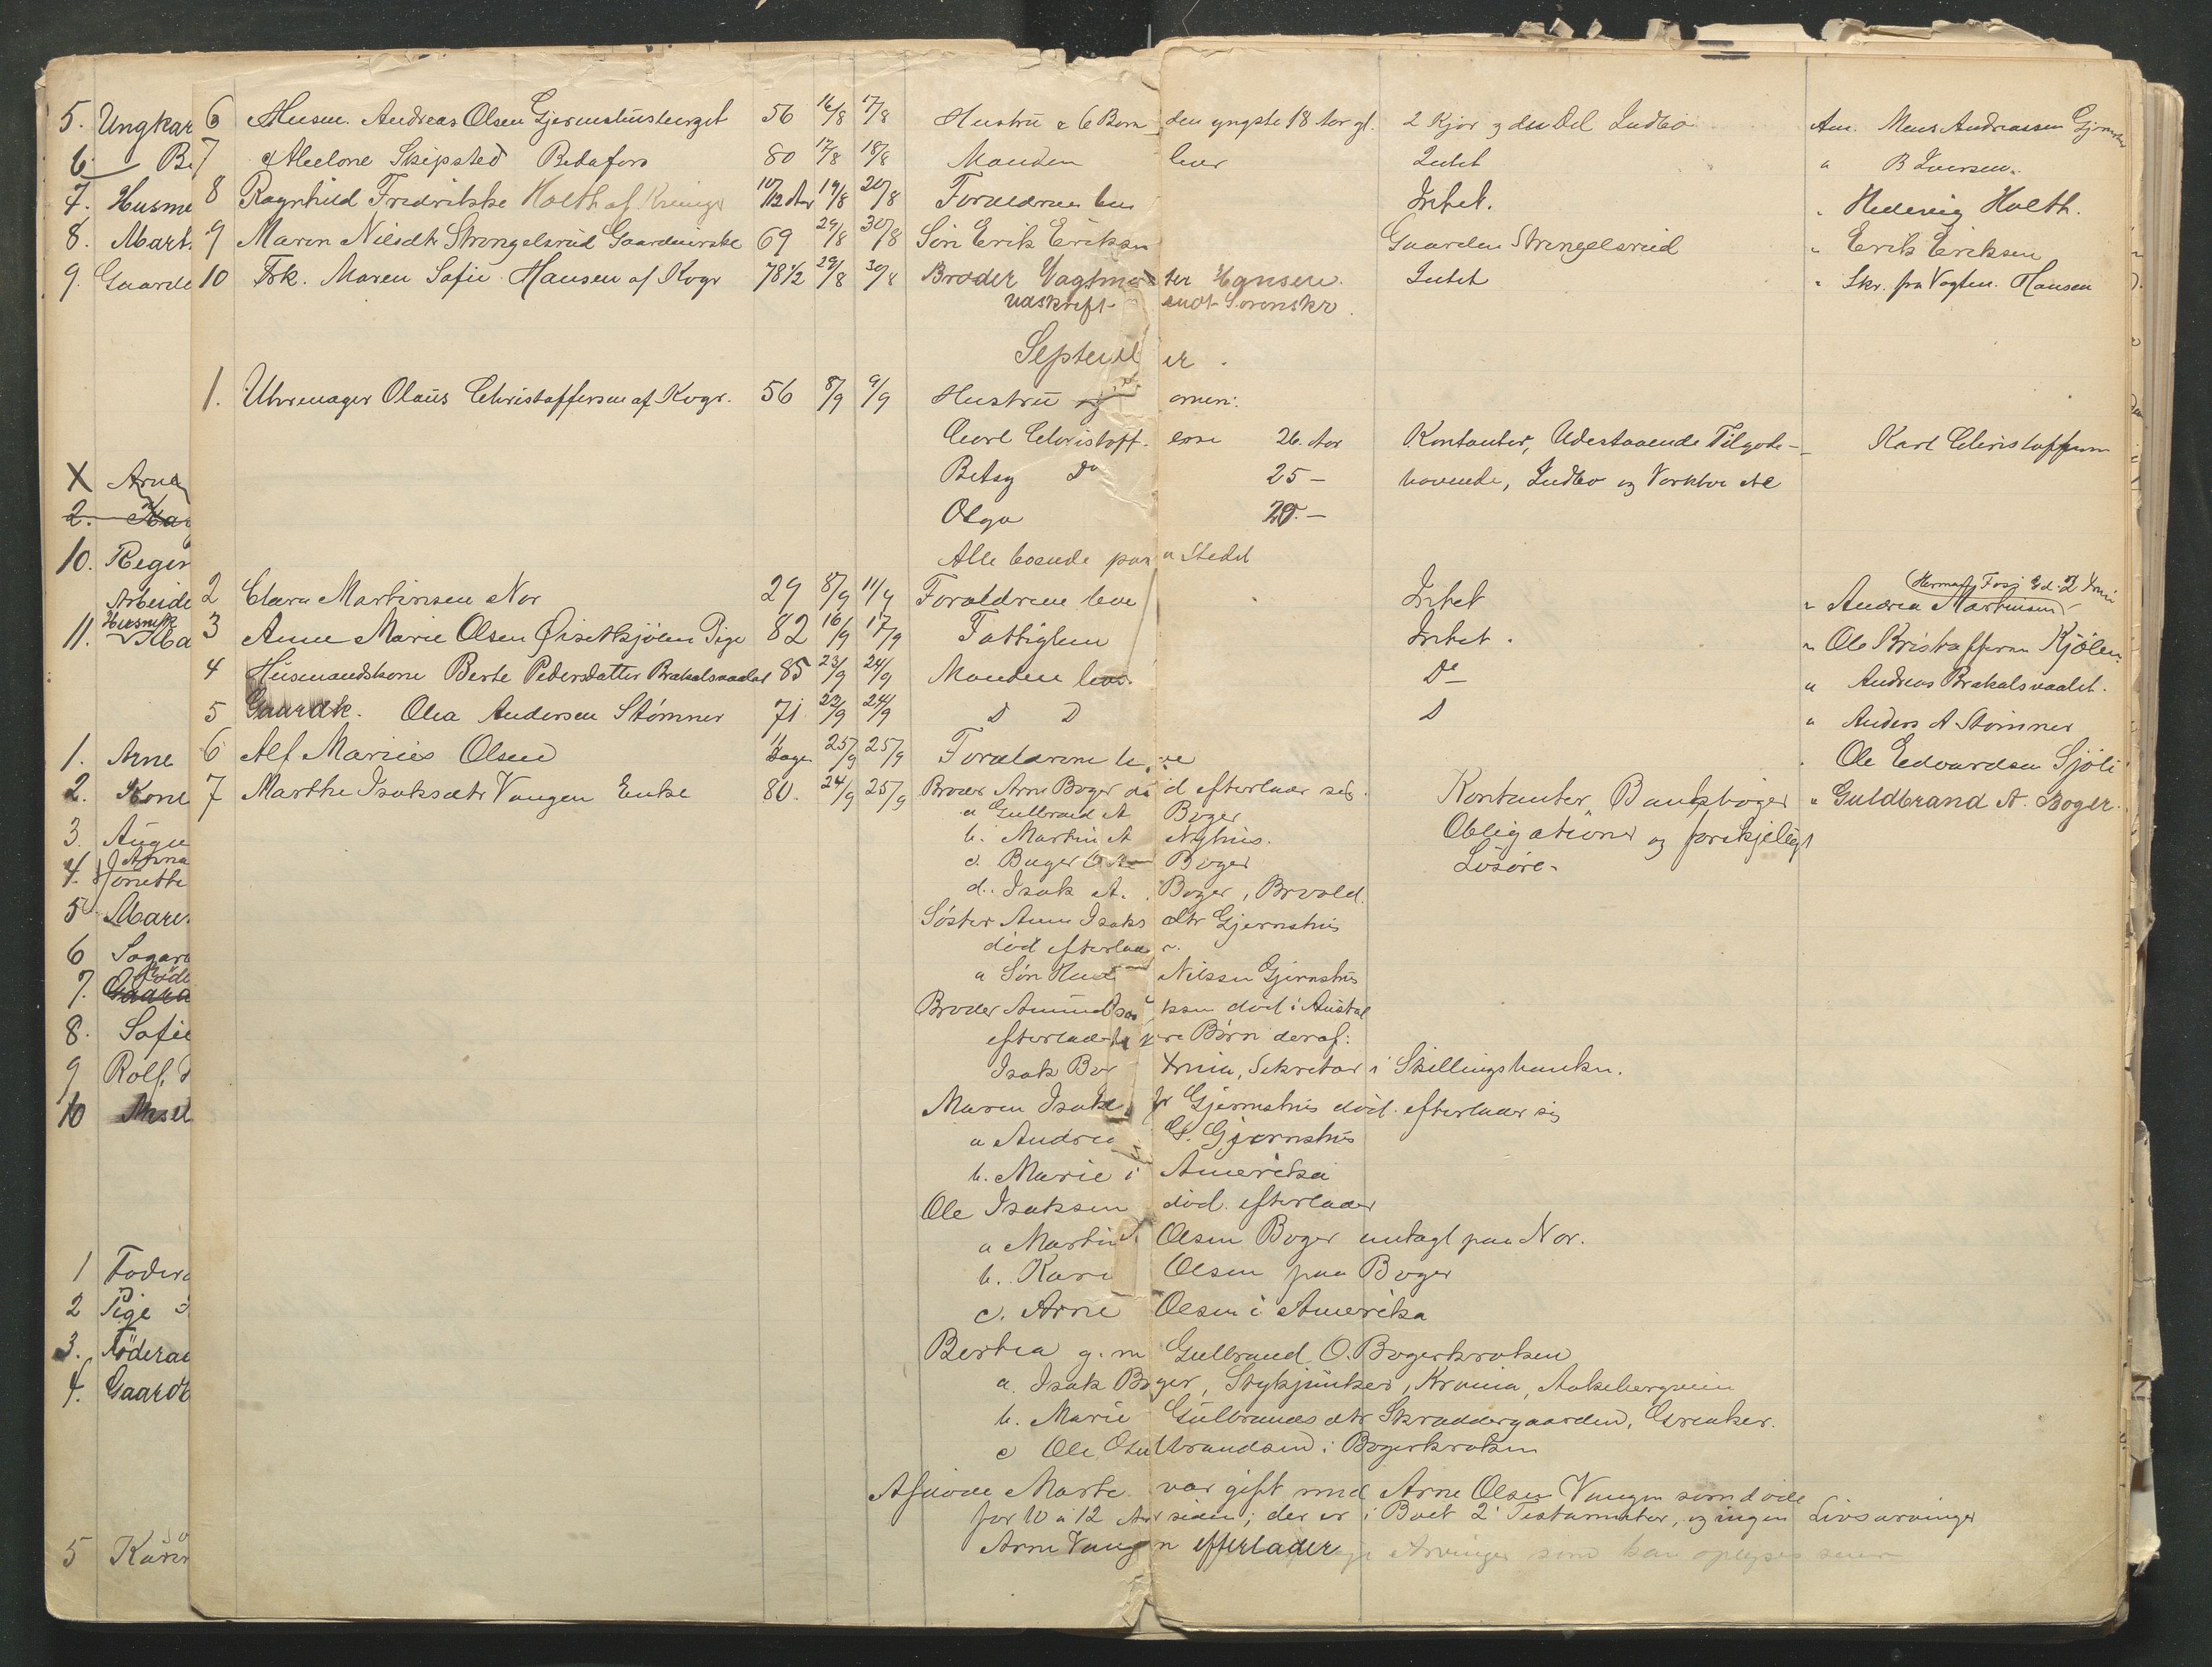 5. Ungkar
6 Husm. Andreas Olsen Gjermshusberget 56 16/8 17/8 Hustru & 6 Børn den yngste 18 Aar gl. 2 Kjør og den Del Indbo Anm. Mens Andreassen
6. Be
7 Meelone Skipsted Betafors 80 17/8 18/8 Manden lever Intet " B Iversen.
7. Husme
8 Ragnhild Fredrikke Holth af Kvinge 10/12 Aar 19/8 20/8 Forældrene leve Intet. " Hedevig Holth.
8. Mart.
9 Maren Nilsdtr Strengelsrud Gaardmerske 69 29/8 30/8 Søn Erik Eriksen Gaarden Strengelsrud " Erik Eriksen
9. Gaarde
10 Frk. Maren Sofie Hansen af Kvgr 78 1/2 29/8 30/8 Broder Vagtmester Hansen. Intet " Skr. fra Vagtm. Hansen
Udskrift sendt Sorenskr.
September.
1. Uhrmager Olaus Christoffersen af Kvgr. 56 8/9 9/9 Hustru og
Carl Christoff. ersen 26. Aar Kontanter, Udestaaende Tilgode- Karl Christoffersen
X Arne
Betsy Do 25 — havende, Indbo og Verktøi etc
2. Kar
Olga 20. —
10. Regin
Alle boende paa Stedet
Arbeide
2 Clara Martinsen Nor 29 8/9 11/9 Forældrene leve Intet " Andrea Martinsen
11. Husmk Ma
3 Anne Marie Olsen Øisetkjølen Pige 82 16/9 17/9 Fattiglem Intet. " Ole Kristoffersen Kjølen.
4 Husmandskone Berte Pedersdatter Brakalsvaalet 85 23/9 24/9 Manden lever Do — " Andreas Brakalsvaalet.
5 Gaardk. Olea Andersen Stømner 71 22/9 24/9 D D D " Anders A Stømner
1. Arne
6 Alf Marius Olsen 11 Dage 25/9 25/9 Forældrene leve " Ole Edvardsen Sjøli
2. Kone
7 Marthe Isaksdtr Vangen Enke 80. 24/9 25/9 Broder Arne Boger død efterlader sig. Kontanter, Bankbøger " Guldbrand A. Boger.
3. Augu
a Gulbrand A Boger Obligationer og forskjelligt
b. Martin A Nyhus. Løsøre.
4. Anna Jonette
c. Boger
d. Isak A. Boger, Brvold.
5 Maren
Søster Anne Isaksdtr Gjermshus
6 Sagar
død efterlader.
7. Føde
a Søn Nilssen Gjermshus
8. Sofie
Broder Amund Isaksen død i Austal
efterlader flere Børn deraf:
9 Rolf
Isak Boger Xrnia, Sekretær i Skillingsbanken.
10
Maren Isaksdtr Gjermshus død. efterlader sig
a Andrea G. Gjermshus
b. Marie i Amerika
Ole Isaksen død. efterlader
a Martin Olsen Boger untagt paa Nor.
1 Føder
b. Kari Olsen paa Boger
2 Pige
c. Arne Olsen i Amerika
3. Föderaa
Bertea g. m Gulbrand O. Bogerkroken
4. Gaardb
a. Isak Boger, Stykjunker, Krania, Aakebergveien
b. Marie Gulbrandsdtr Skræddergaarden, Grenker.
c Ole Gulbrandsen i Bogerkroken
Afdøde Marte var gift med Arne Olsen Vangen som døde
for 10 a 12 Aar siden; der er i Boet 2 Testamenter, og ingen Livsarvinger
5 Karen
Arne Vangen efterlader Arvinger som kan oplyses